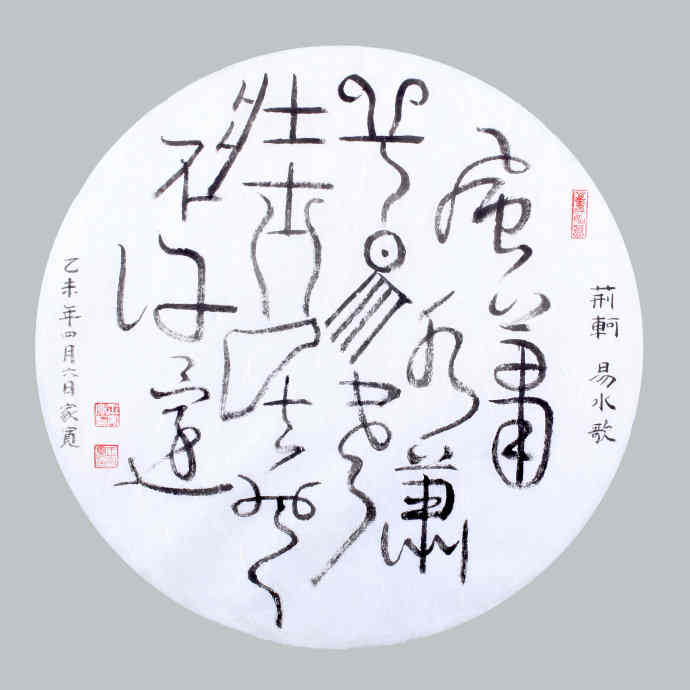 荊軻 易水歌
風蕭
蕭
兮易水寒
壯士一去兮
不復還
乙未年四月六日家寬